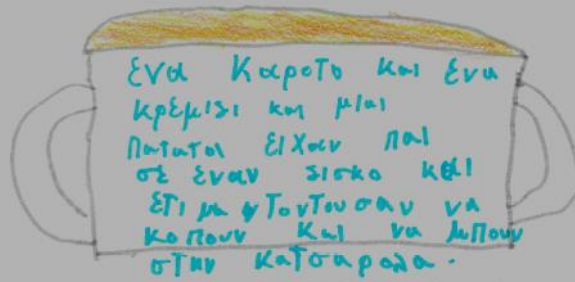 ενα Καροτο και ενα
κρέμιδι και μιαι
Πατατα ειχαν παι
σε εναν δισκο και
ετιμαντοντουσαν να
κοπουν και να μπουν
στην κατσαρολα.